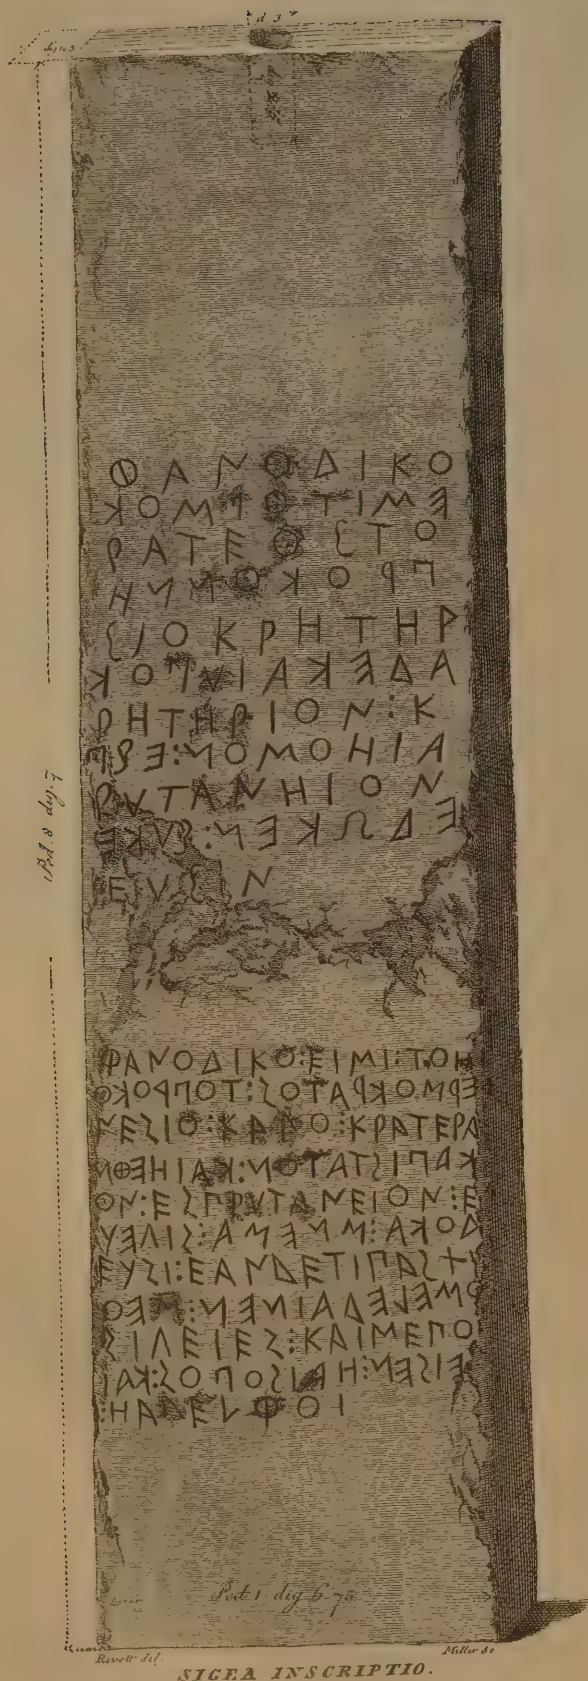 dig. 3
d 3
ΦΑΝΟΔΙΚΟ
ΕΜΙΤΟΡΜΟΚ
ΡΑΤΕΟΣΤΟ
ΠΡΟΚΟΝΝΗ
ΣΙΟΚΡΗΤΗΡ
ΑΔΕΚΑΙΥΠΟΚ
ΡΗΤΗΡΙΟΝ:Κ
ΑΙΗΟΜΟΝ:ΕΣΠ
ΡΥΤΑΝΗΙΟΝ
ΕΔΩΚΕΝ:ΣΥΚΕ
ΕΥΣΙΝ
Ped. 8 dig. 7
ΦΑΝΟΔΙΚΟ:ΕΙΜΙ:ΤΟΗ
ΕΡΜΟΚΡΑΤΟΣ:ΤΟΠΡΟΚΟ
ΝΕΣΙΟ:ΚΑΓΟ:ΚΡΑΤΕΡΑ
ΚΑΠΙΣΤΑΤΟΝ:ΚΑΙΗΕΘΜ
ΟΝ:ΕΣΠΡΥΤΑΝΕΙΟΝ:Ε
ΔΟΚΑ:ΜΝΕΜΑ:ΣΙΛΕΥ
ΕΥΣΙ:ΕΑΝΔΕΤΙΠΑΣ+
ΟΜΕΛΕΔΑΙΝΕΝ:ΜΕΟ
ΣΙΛΕΙΕΣ:ΚΑΙΜΕΠΟ
ΕΙΣΕΝ:ΗΑΙΣΟΠΟΣ:ΚΑΙ
:ΗΑΔΕΛΦΟΙ
Ped. 1 dig 6.75
Revett del.
Miller sc
SIGEA INSCRIPTIO.